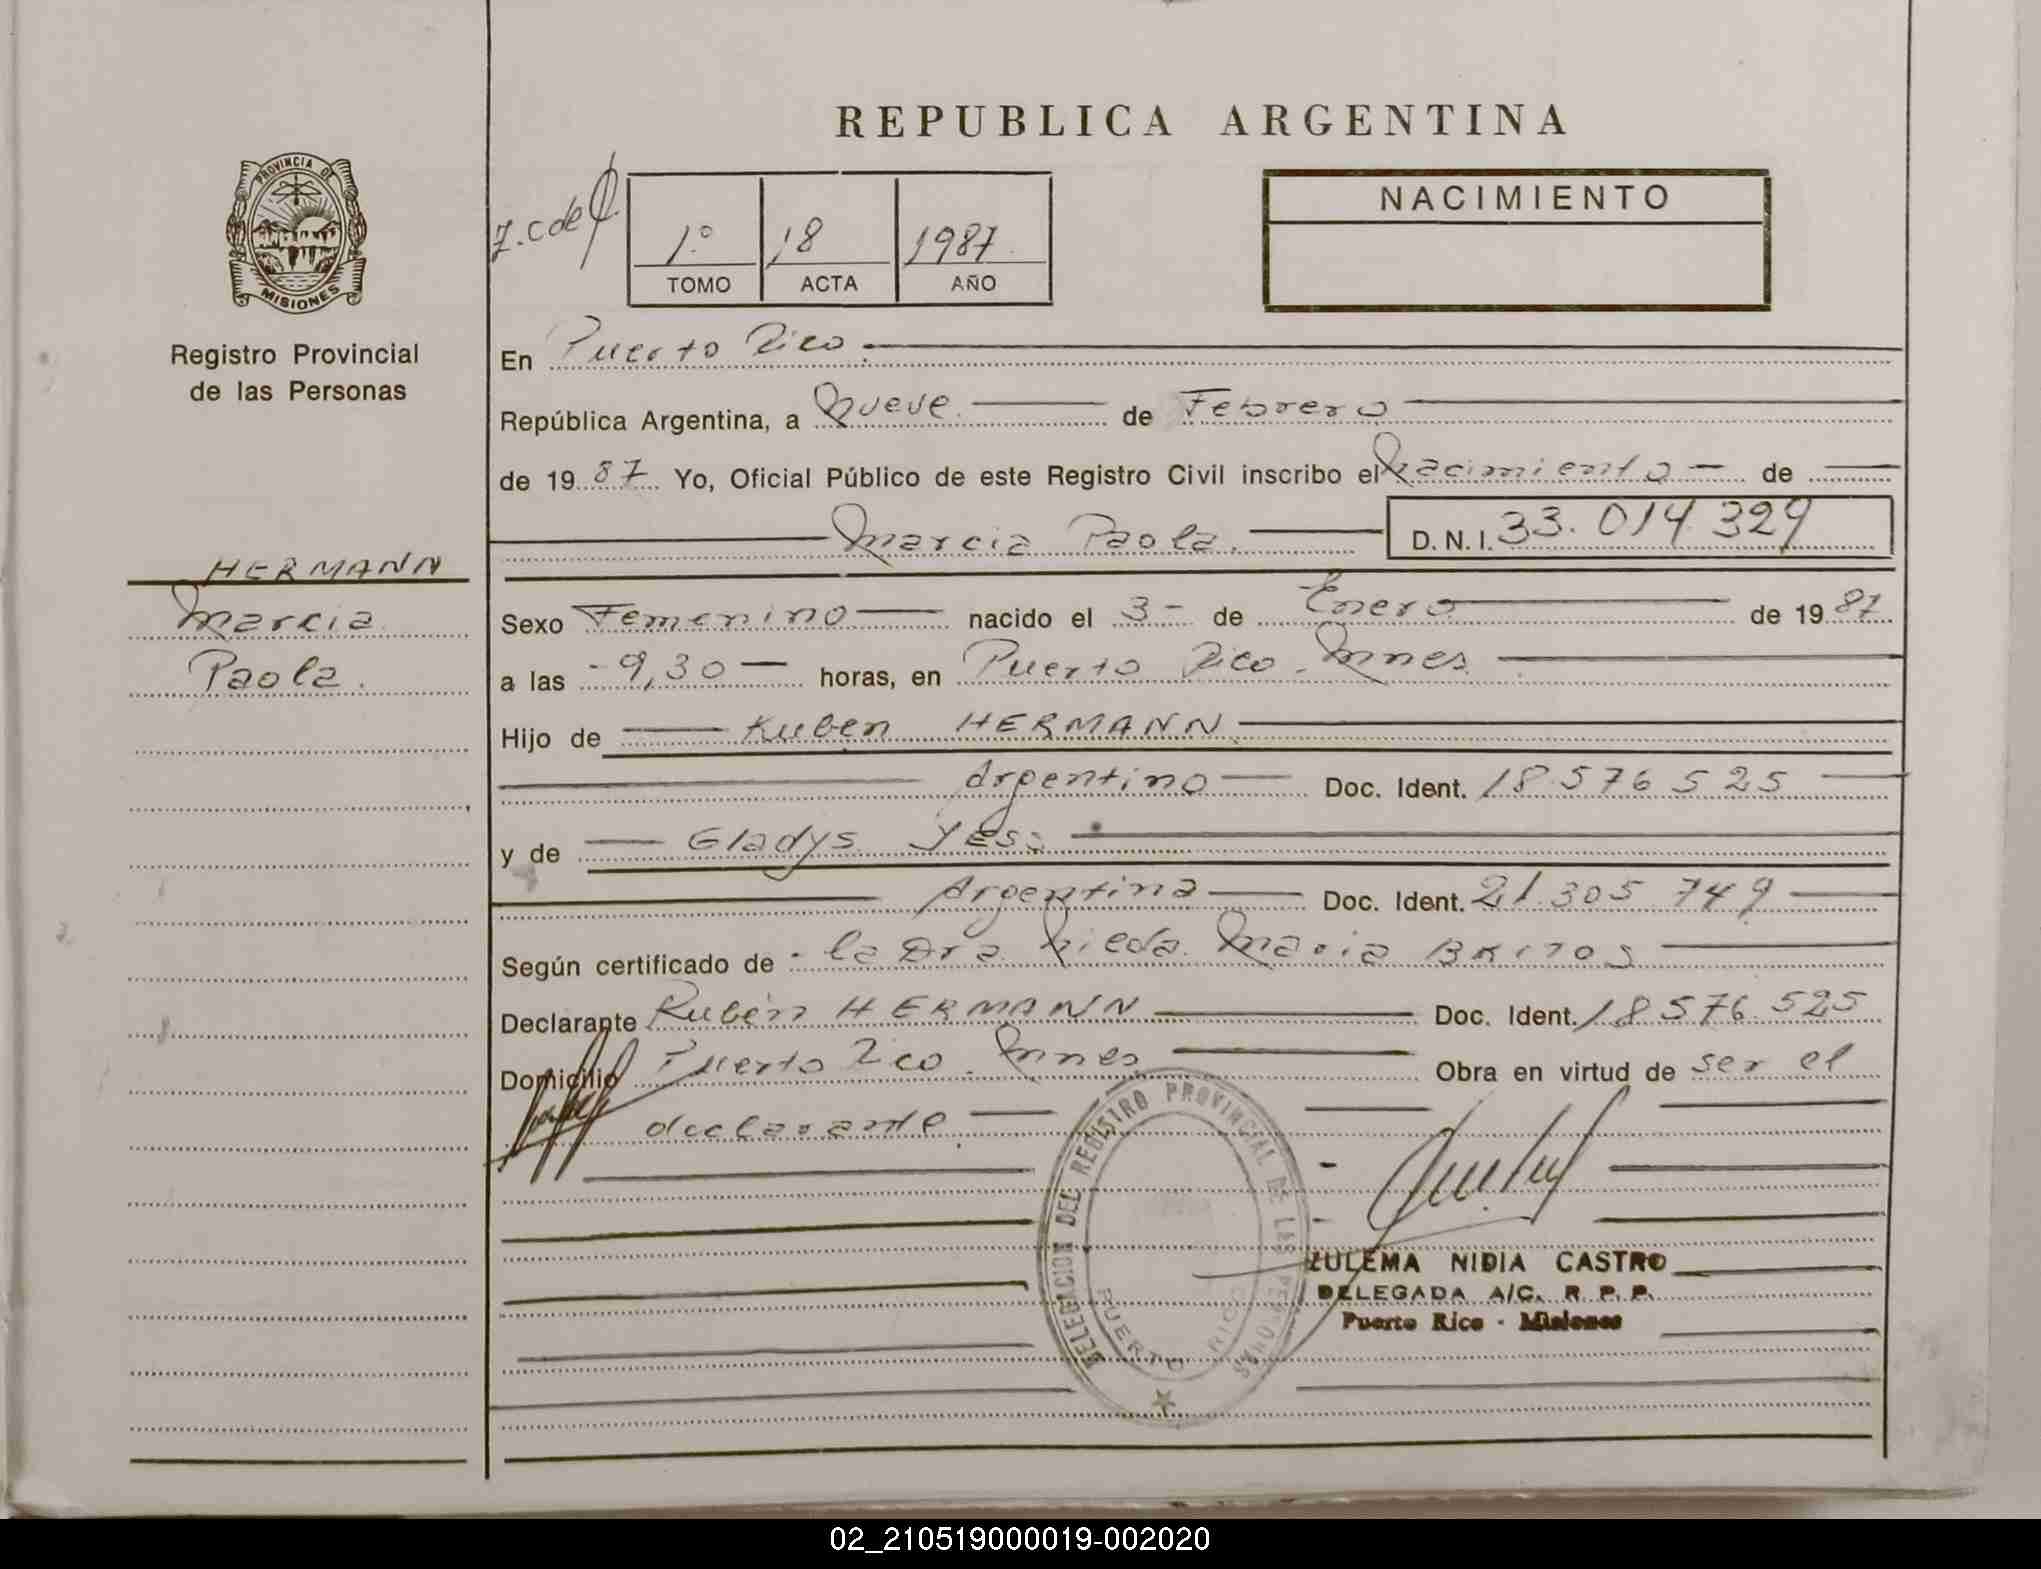 REPUBLICA ARGENTINA
PROVINCIA DE
MISIONES
Registro Provincial
de las Personas
1º 18 1987
TOMO ACTA AÑO
NACIMIENTO
En Puerto Rico.
República Argentina, a Nueve de Febrero
de 1987 Yo, Oficial Público de este Registro Civil inscribo el Nacimiento de
Marcia Paola. D.N.I. 33.014.329
HERMANN
Marcia
Paola.
Sexo Femenino nacido el 3 de Enero de 1987
a las 9,30 horas, en Puerto Rico. Mnes.
Hijo de Ruben HERMANN
Argentino Doc. Ident. 18.576.525
y de Gladys YESS
Argentina Doc. Ident. 21.305.749
Según certificado de la Dra Nieda Maria BRITOS
Declarante Rubén HERMANN Doc. Ident. 18.576.525
Domicilio Puerto Rico. Mnes. Obra en virtud de ser el
declarante.
DELEGACION DEL REGISTRO PROVINCIAL DE LAS PERSONAS
PUERTO RICO
ZULEMA NIDIA CASTRO
DELEGADA A/C. R. P. P.
Puerto Rico - Misiones
02_210519000019-002020